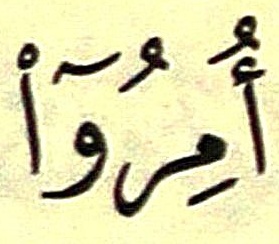 أُمِرُوٓا۟